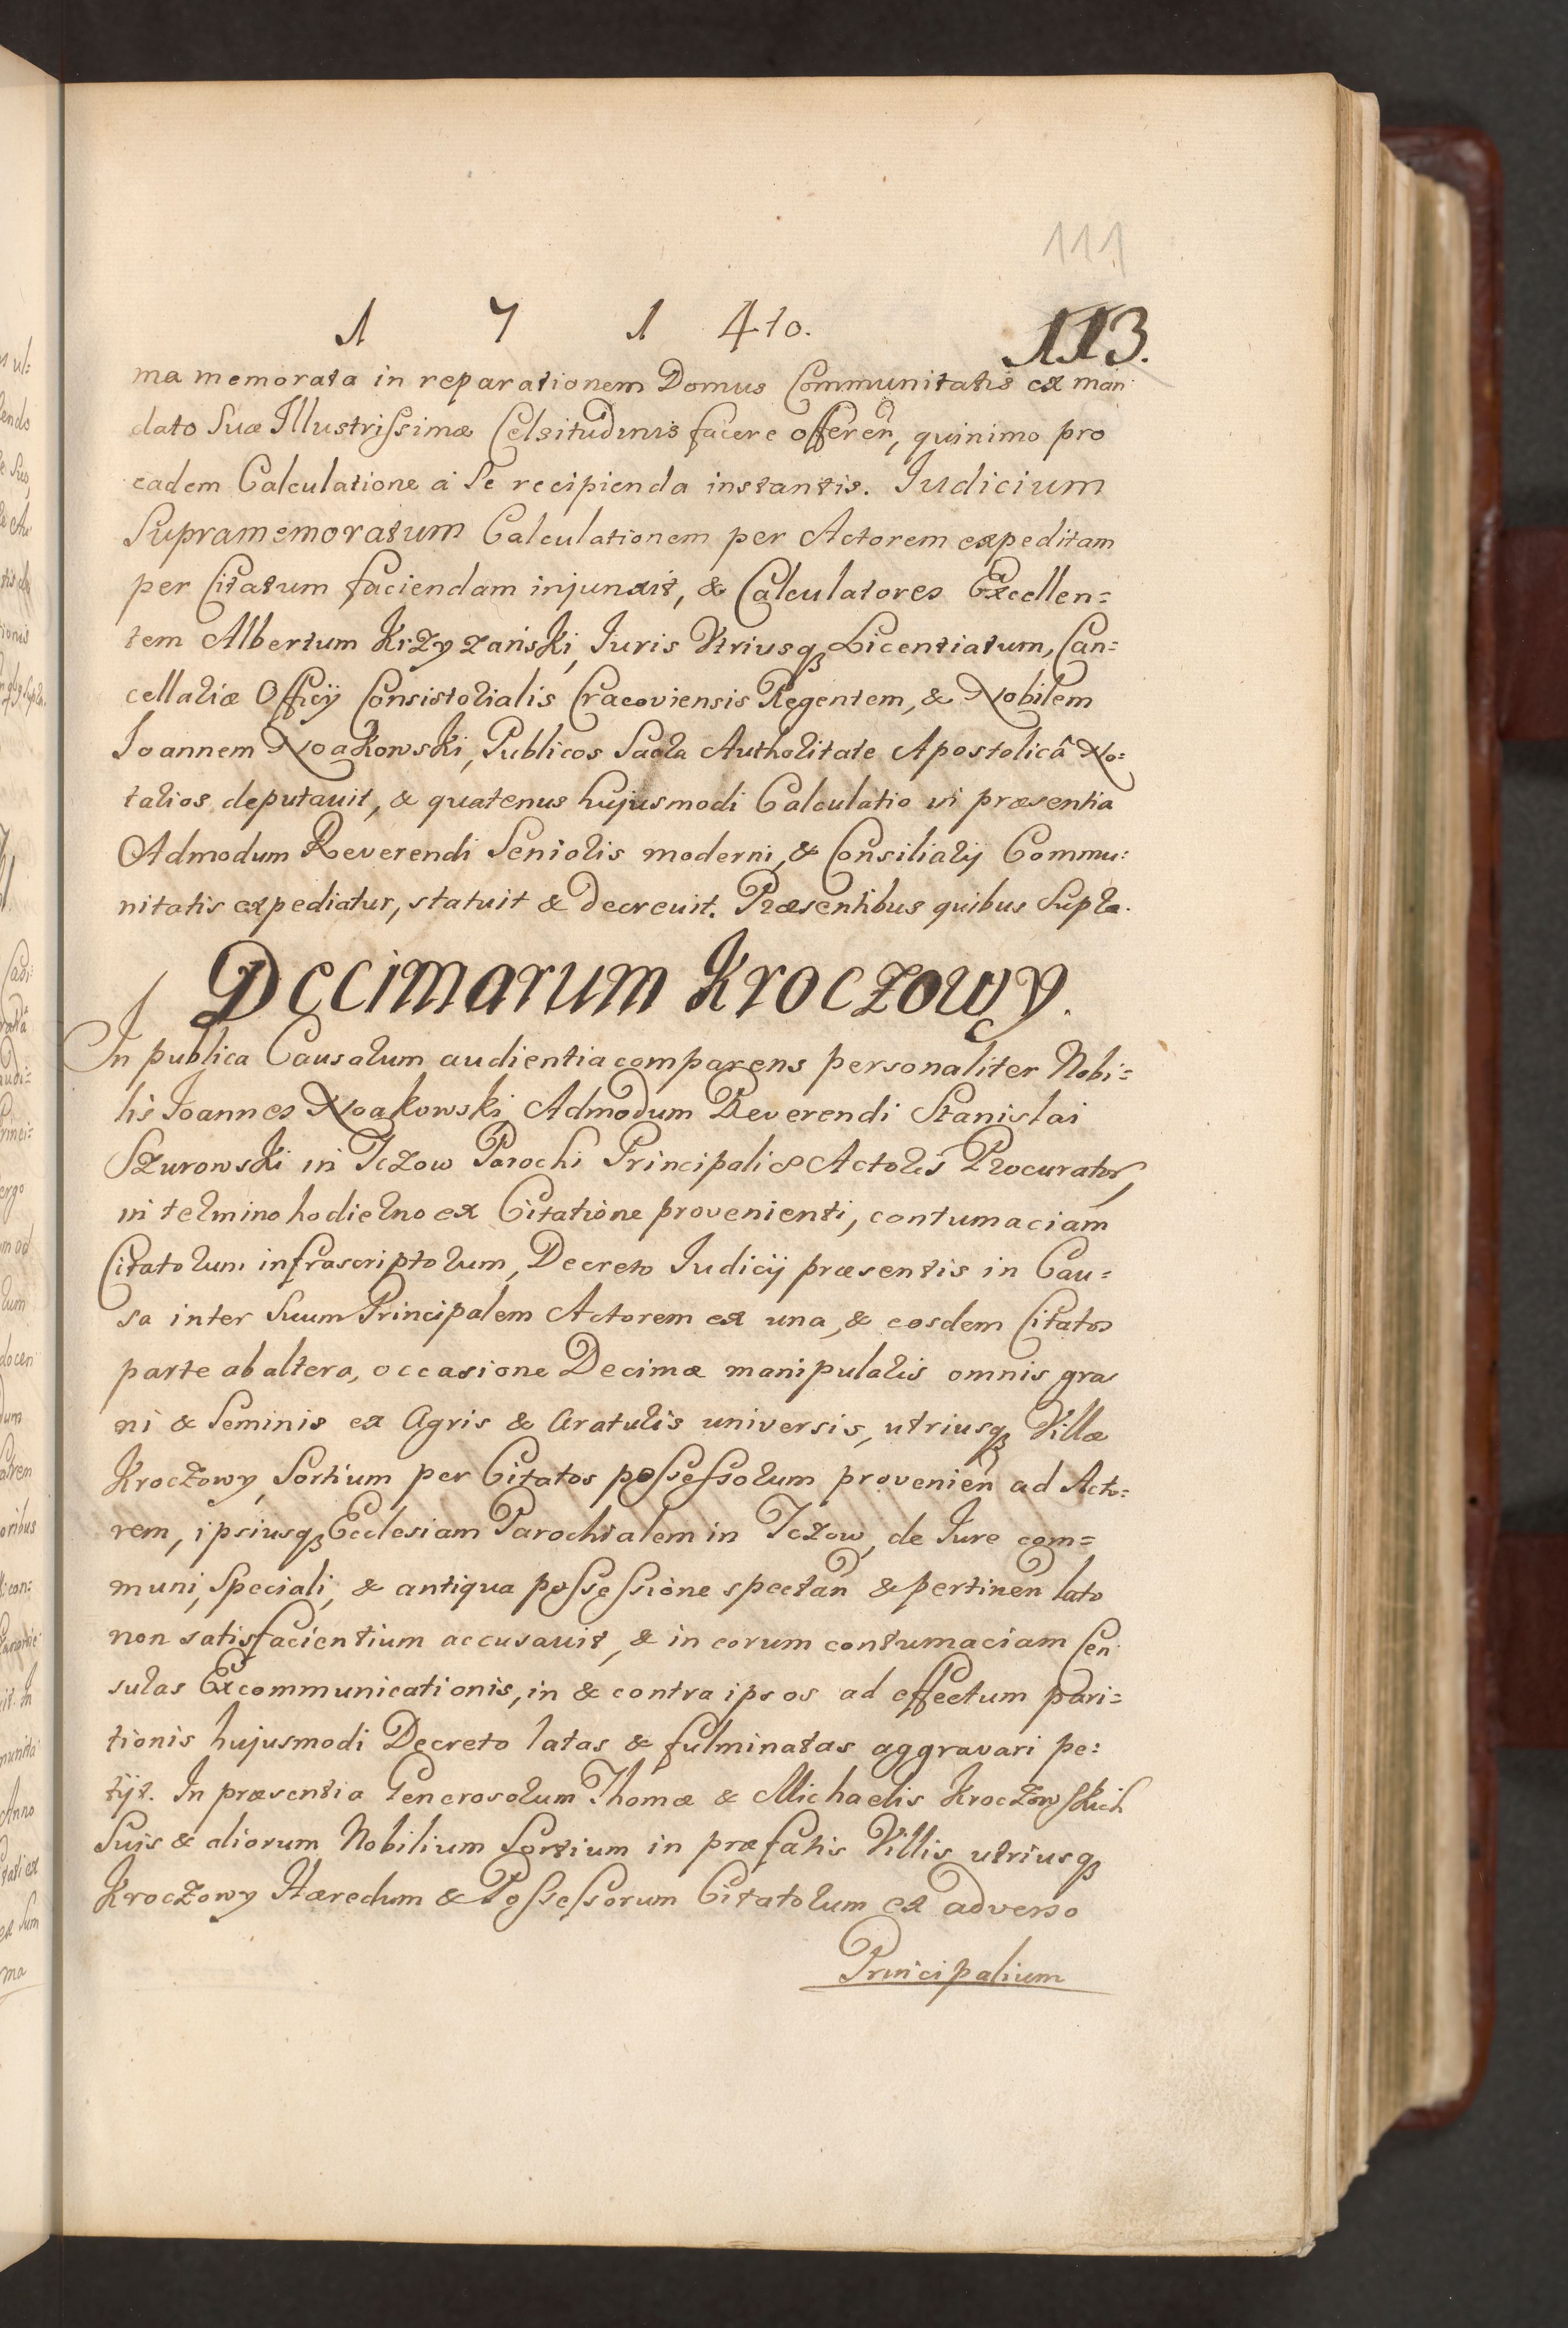 111
1 7 1 4to. 113.
ma memorata in reparationem Domus Communitatis ex man
dato Suæ Illustrissimæ Celsitudinis facere offeren̄, quinimo pro
eadem Calculatione à Se recipienda instantis. Iudicium
Supramemoratum Calculationem per Actorem expeditam
per Citatum faciendam injunxit, & Calculatores Excellen=
tem Albertum Krzyzański, Iuris Vtriusqꝫ Licentiatum, Can=
cellariæ Officij Consistorialis Cracoviensis Regentem, & Nobilem
Ioannem Noakowski, Publicos Sacra Authoritate Apostolicâ No=
tarios deputauit, & quatenus hujusmodi Calculatio in præsentia
Admodum Reverendi Senioris moderni, & Consiliarij Commu=
nitatis expediatur, statuit & decreuit. Præsentibus quibus supra.
Decimarum Kroczowy.
In publica Causarum audientia comparens personaliter Nobi=
lis Ioannes Noakowski, Admodum Reverendi Stanislai
Szurowski in Tczow Parochi Principalis Actoris Procurator,
in termino hodierno ex Citatione provenienti, contumaciam
Citatorum infrascriptorum, Decreto Iudicij præsentis in Cau=
sa inter Suum Principalem Actorem ex una, & eosdem Citatos
parte ab altera, occasione Decimæ manipularis omnis gra
ni & Seminis ex Agris & Araturis universis, utriusqꝫ Villæ
Kroczowy, Sortium per Citatos possessorum provenien̄ ad Acto=
rem, ipsiusqꝫ Ecclesiam Parochialem in Tczow, de Iure com=
muni, Speciali, & antiqua possessione spectan̄ & pertinen̄ lato
non satisfacientium accusauit, & in eorum contumaciam Cen
suras Excommunicationis, in & contra ipsos ad effectum pari=
tionis hujusmodi Decreto latas & fulminatas aggravari pe=
tijt. In præsentia Generosorum Thomæ & Michaelis Kroczowskich
Suis & aliorum Nobilium Sortium in præfatis Villis utriusqꝫ
Kroczowy Hæredum & Possessorum Citatorum ex adverso
Principalium